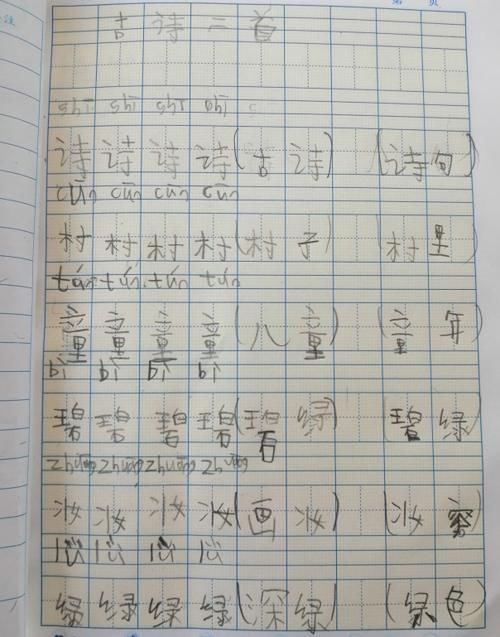 古诗二首
shī shī shī shī
诗 诗 诗 诗 (古 诗) (诗句)
cūn cūn cūn cūn
村 村 村 村 (村 子) (村 里)
tún tún tún tún
童 童 童 童 (儿 童) (童 年)
bì bì bì bì
碧 碧 碧 碧 (碧 绿) (碧 绿)
zhuāng zhuāng zhuāng zhuāng
妆 妆 妆 妆 (画 妆) (妆
绿 绿 绿 绿 (深 绿) (绿 色)